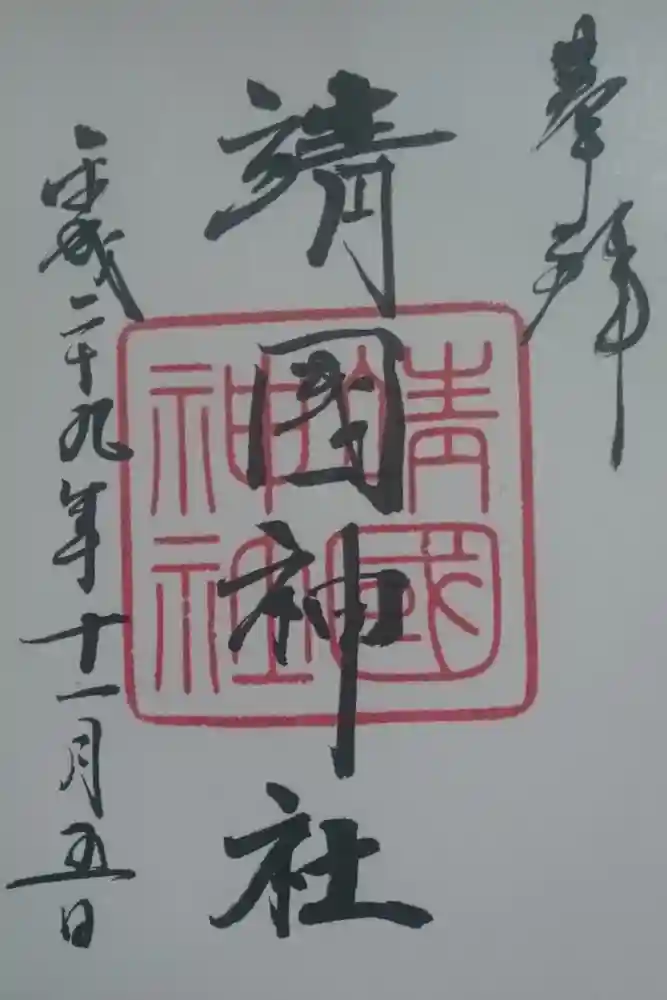 奉拝
靖國神社
靖國
神社
平成二十九年十一月五日